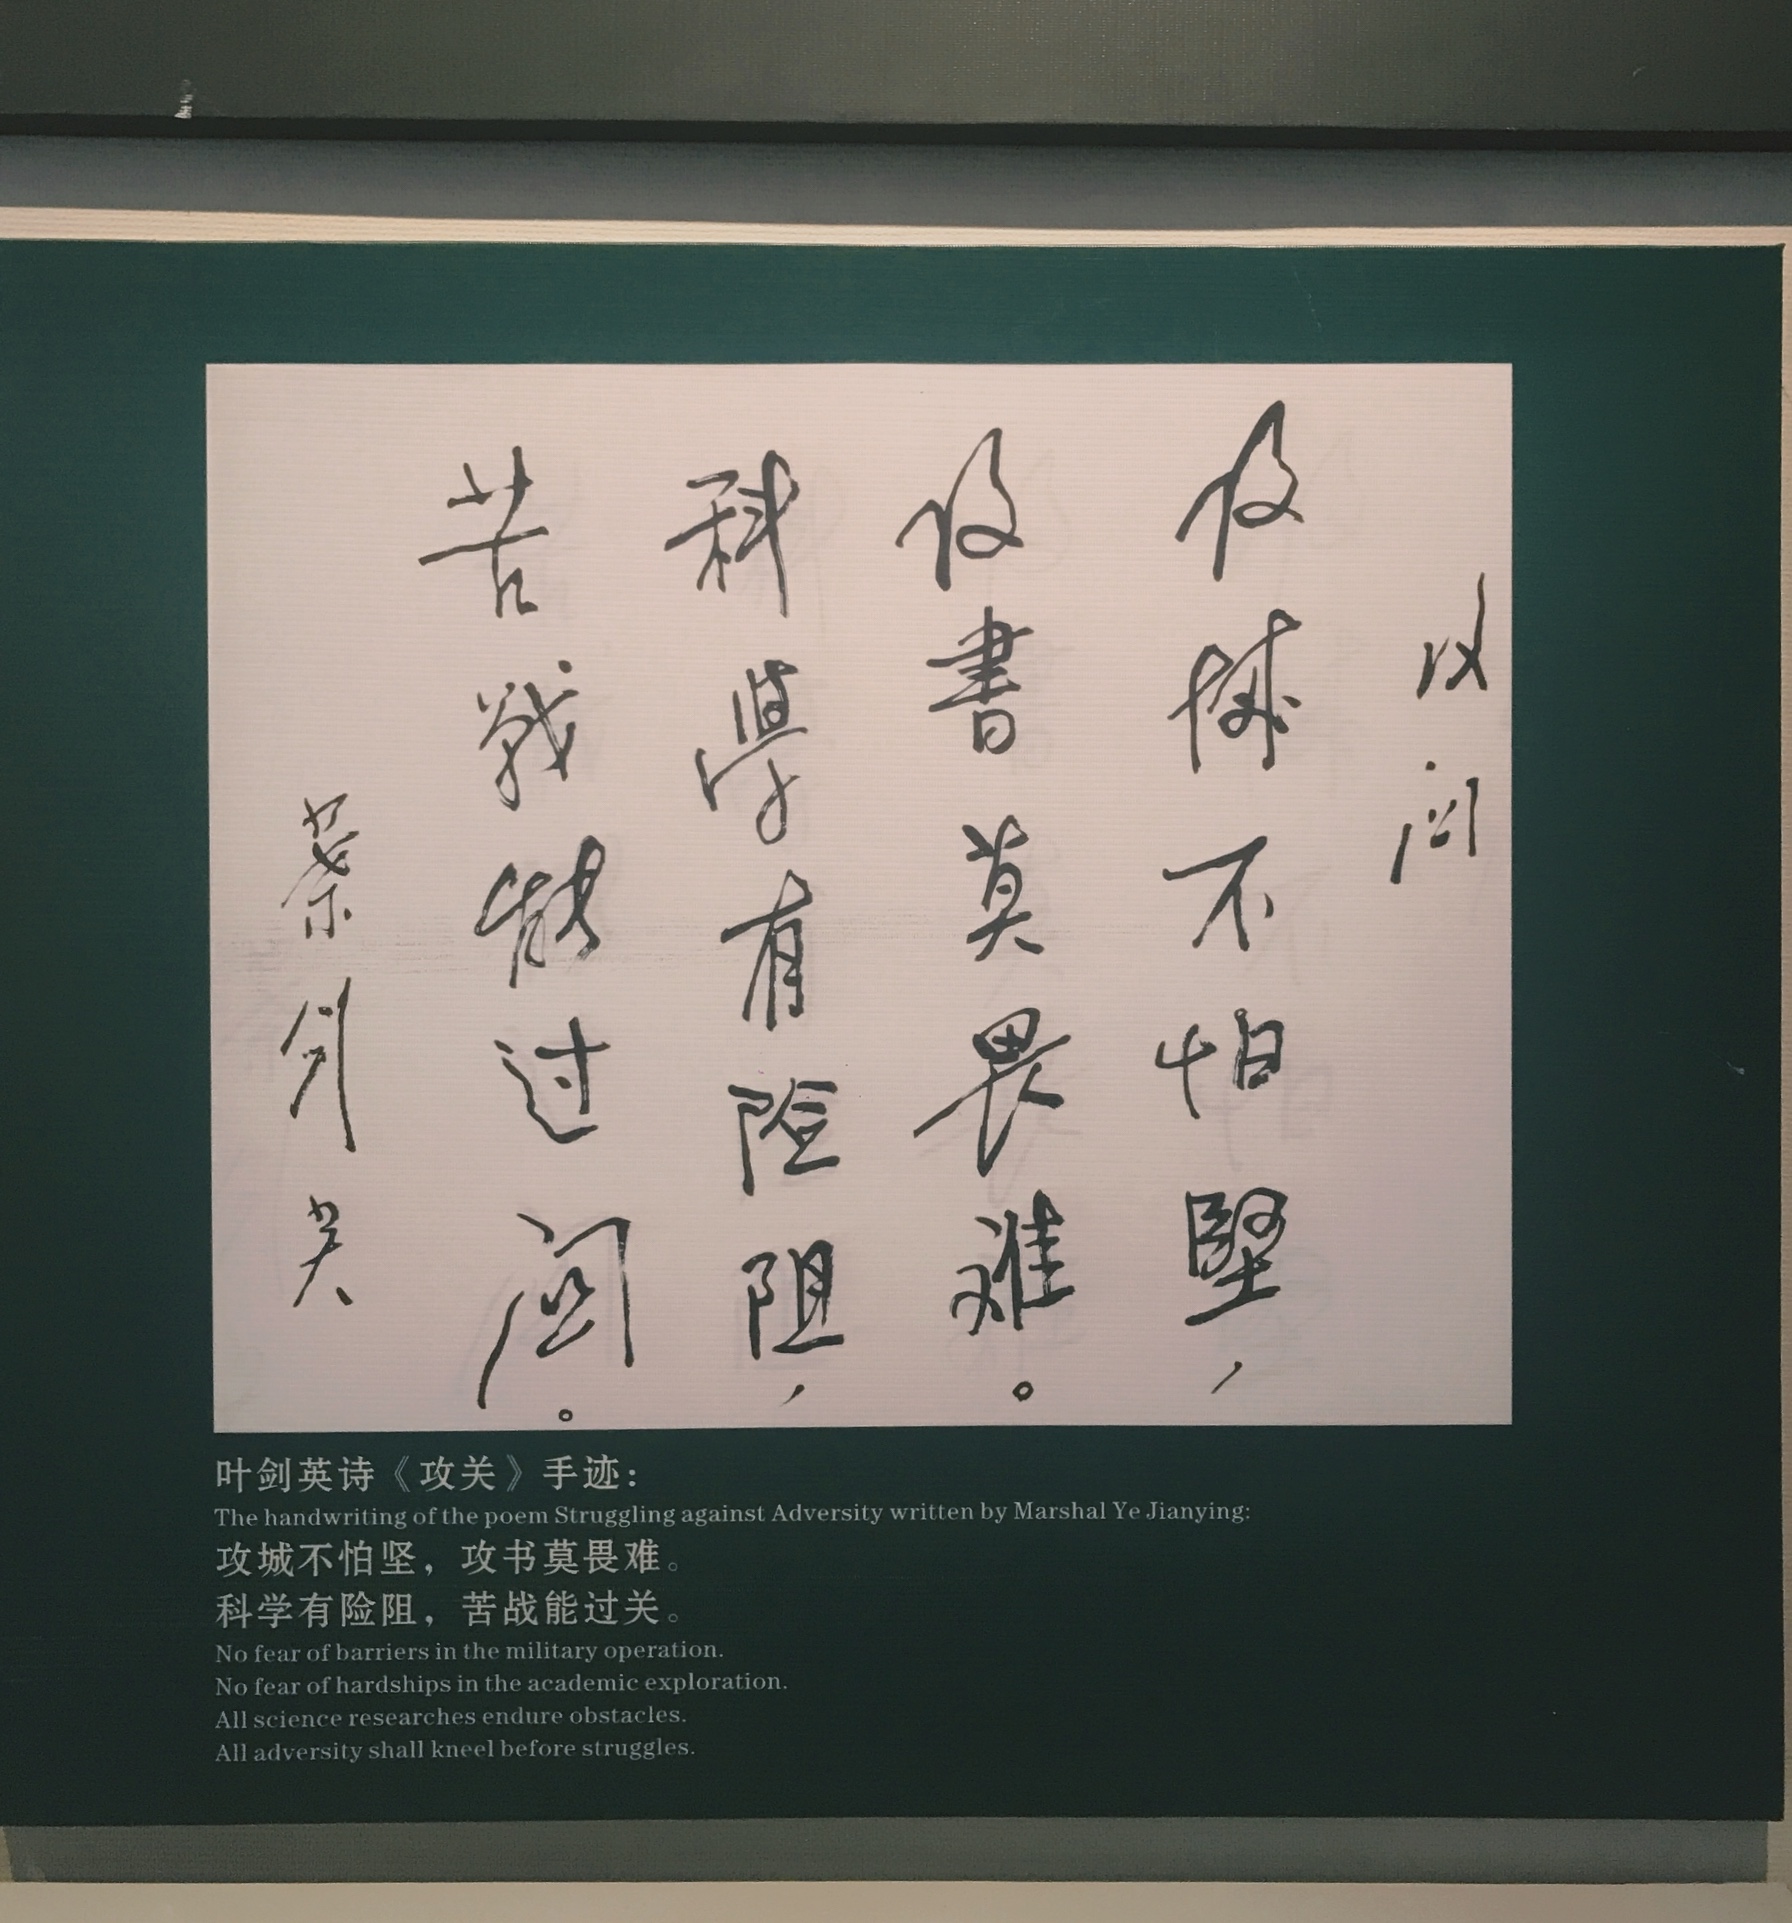 攻关
攻城不怕堅，
攻書莫畏难。
科學有险阻，
苦戰能过関。
葉剑英
叶剑英诗《攻关》手迹：
The handwriting of the poem Struggling against Adversity written by Marshal Ye Jianying:
攻城不怕坚，攻书莫畏难。
科学有险阻，苦战能过关。
No fear of barriers in the military operation.
No fear of hardships in the academic exploration.
All science researches endure obstacles.
All adversity shall kneel before struggles.